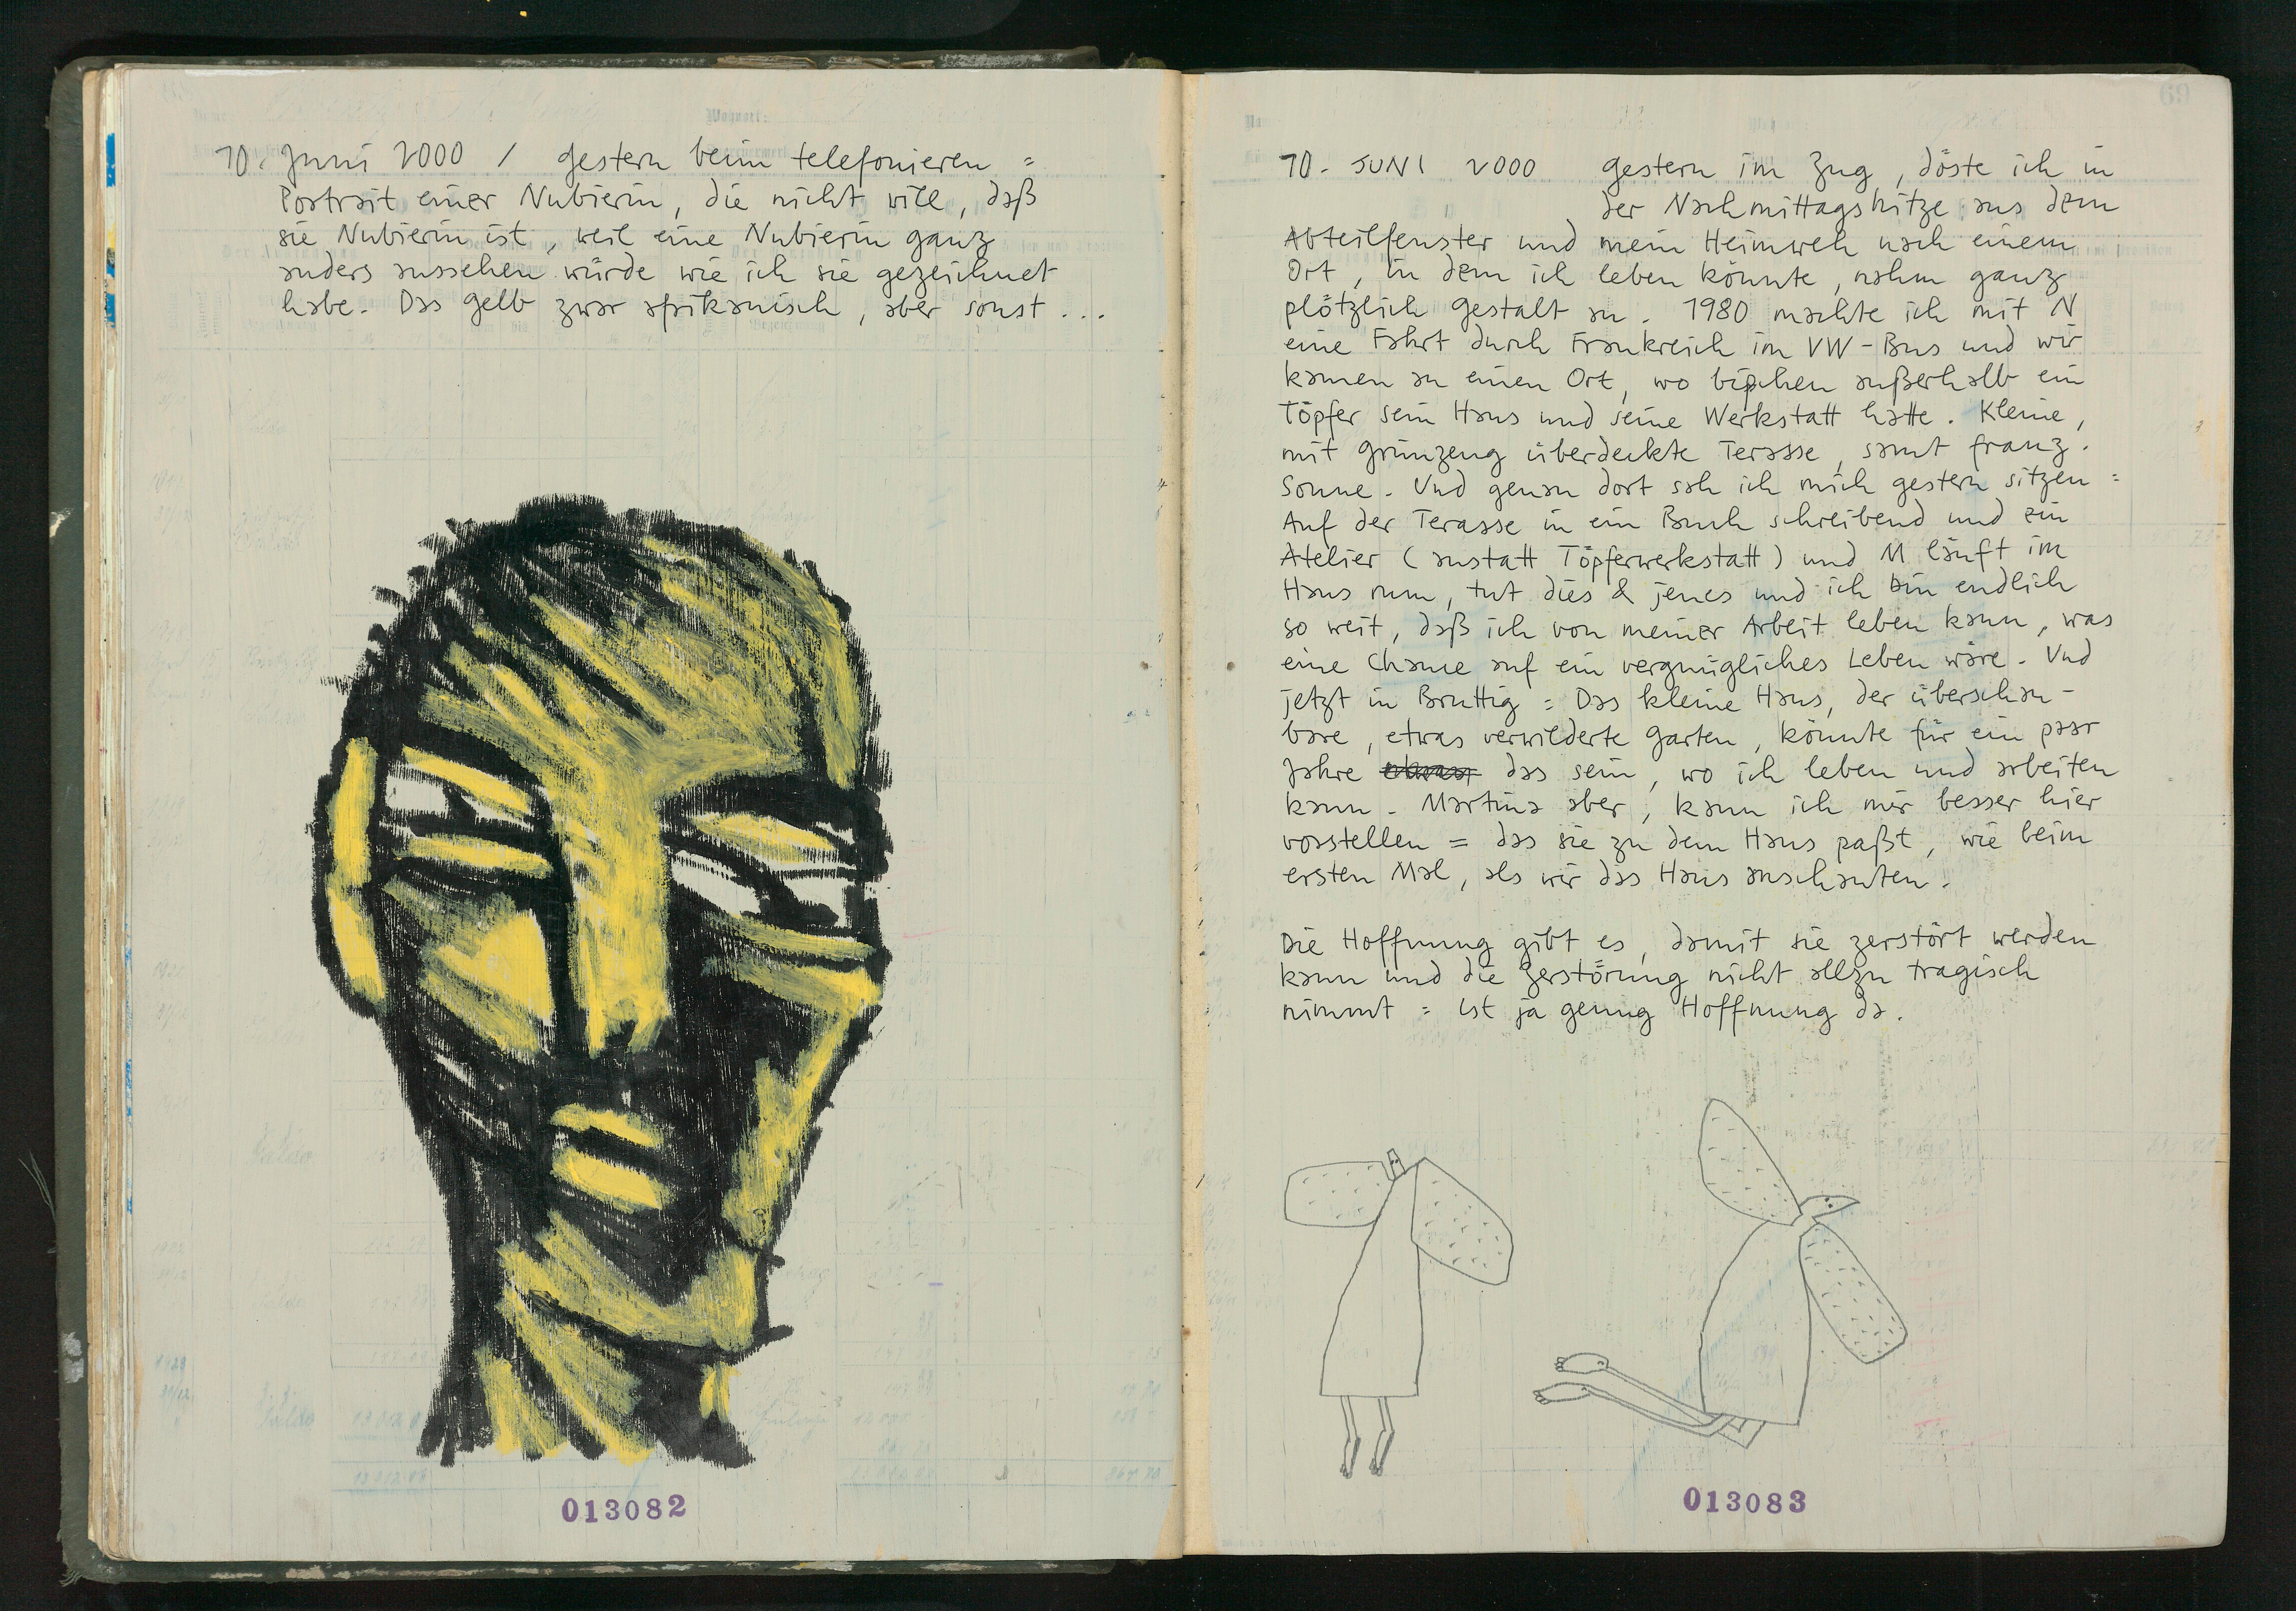 10. Juni 2000 / gestern beim telefonieren =
Portrait einer Nubierin, die nicht will, daß
sie Nubierin ist, weil eine Nubierin ganz
anders aussehen würde wie ich sie gezeichnet
habe. Das gelb zwar afrikanisch, aber sonst ...
013082
69
10. JUNI 2000 gestern im Zug, döste ich in
der Nachmittagshitze aus dem
Abteilfenster und mein Heimweh nach einem
Ort, in dem ich leben könnte, nahm ganz
plötzlich gestalt an. 1980 machte ich mit N
eine Fahrt durch Frankreich im VW-Bus und wir
kamen an einen Ort, wo bißchen außerhalb ein
Töpfer sein Haus und seine Werkstatt hatte. Kleine,
mit grünzeug überdeckte Terasse, samt franz.
Sonne. Und genau dort sah ich mich gestern sitzen =
Auf der Terasse in ein Buch schreibend und ein
Atelier (anstatt Töpferwerkstatt) und M läuft im
Haus rum, tut dies & jenes und ich bin endlich
so weit, daß ich von meiner Arbeit leben kann, was
eine Chance auf ein vergnügliches Leben wäre. Und
jetzt in Bruttig = Das kleine Haus, der überschau-
bare, etwas verwilderte garten, könnte für ein paar
Jahre das sein, wo ich leben und arbeiten
kann. Martina aber, kann ich mir besser hier
vorstellen = das sie zu dem Haus paßt, wie beim
ersten Mal, als wir das Haus anschauten.
Die Hoffnung gibt es, damit sie zerstört werden
kann und die Zerstörung nicht allzu tragisch
nimmt = ist ja genug Hoffnung da.
013083